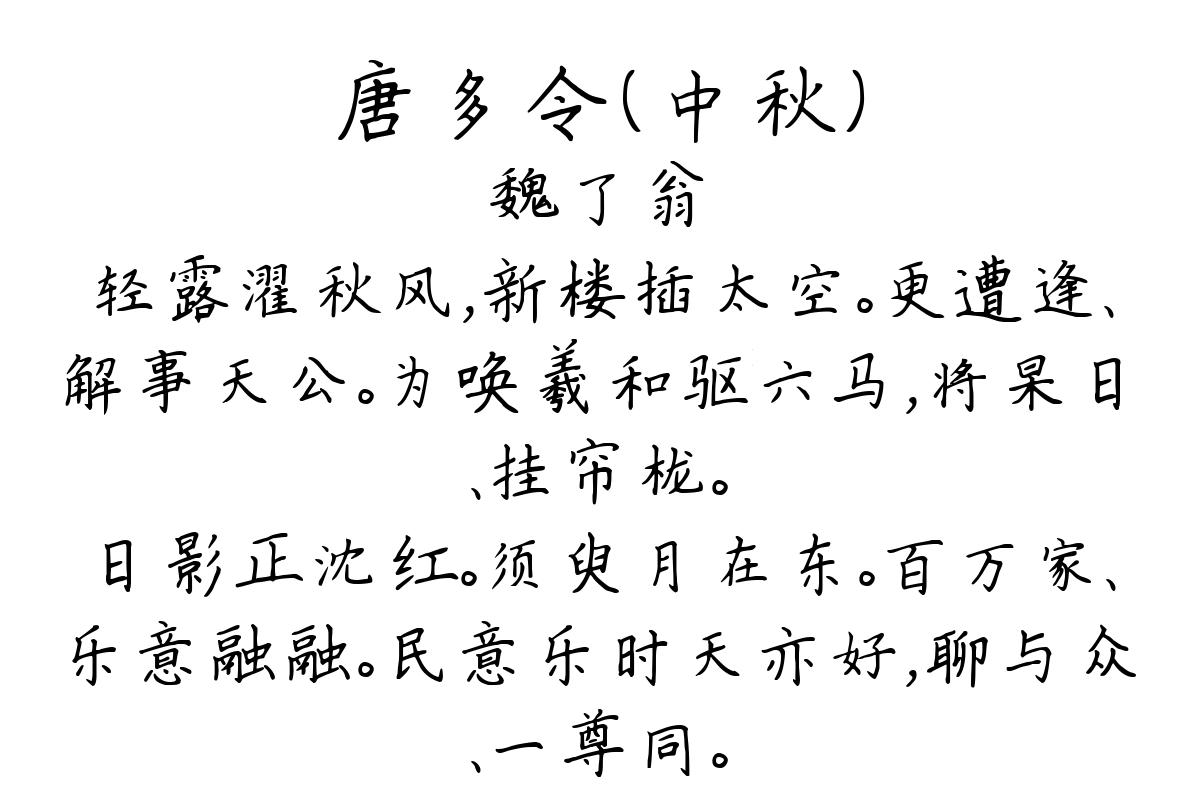 唐多令(中秋)
魏了翁
轻露濯秋风,新楼插太空。更遭逢、
解事天公。为唤羲和驱六马,将杲日
、挂帘栊。
日影正沈红。须臾月在东。百万家、
乐意融融。民意乐时天亦好,聊与众
、一尊同。